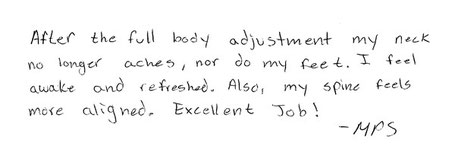 After the full body adjustment my neck
no longer aches, nor do my feet. I feel
awake and refreshed. Also, my spine feels
more aligned. Excellent Job!
-MPS